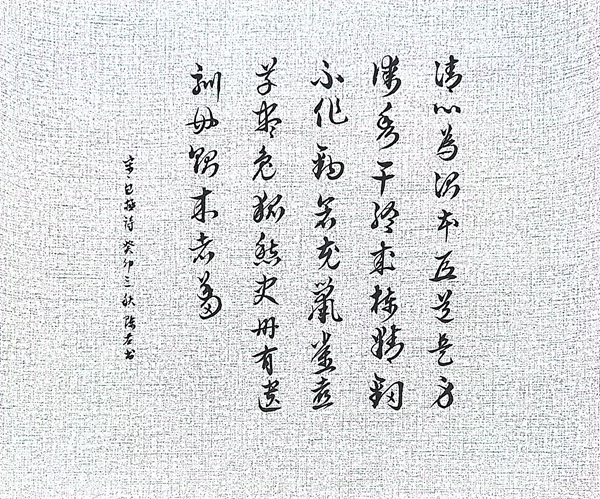 清心為治本直道是身
謀秀干終成棟精鋼
不作鉤倉充鼠雀喜
草盡兔狐愁史冊有遺
訓毋貽來者羞
宋包拯詩癸卯之秋陳書